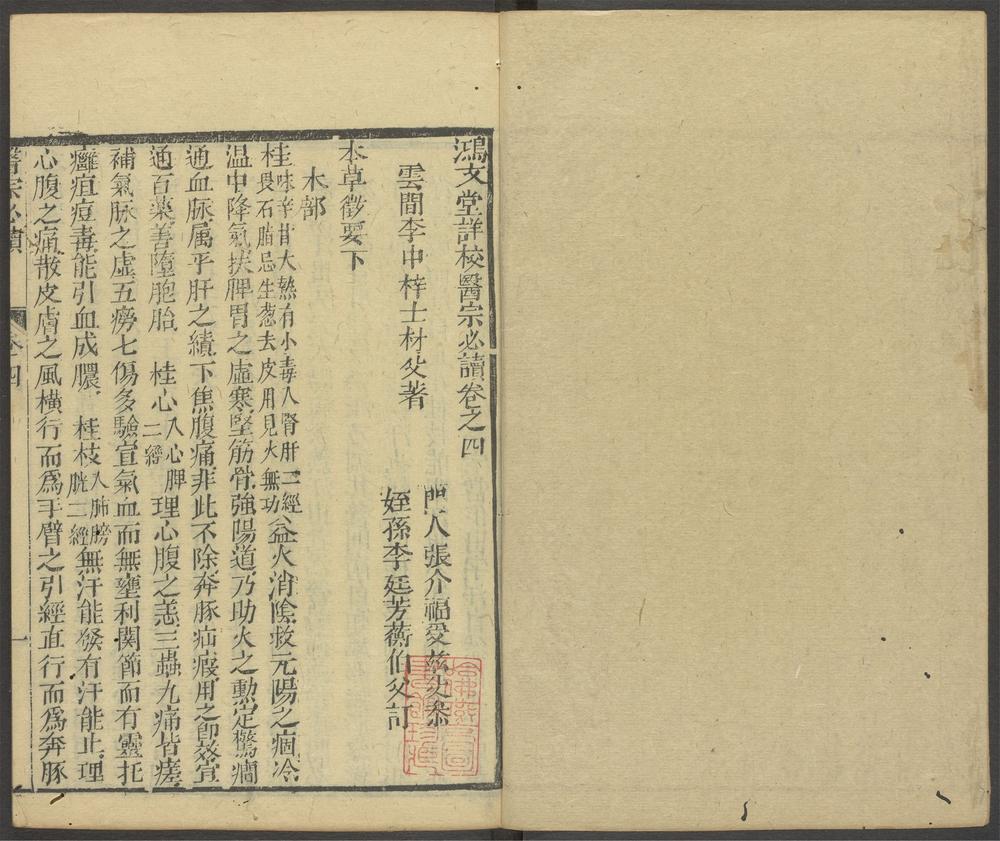 鴻文堂詳校醫宗必讀卷之四
雲間李中梓士材父著
門人張介福受茲父叅
姪孫李廷芳蘅伯父訂
本草徵要下
木部
桂味辛甘大熱有小毒入腎肝二經畏石脂忌生葱去皮用見火無功益火消陰救元陽之痼冷
温中降氣扶脾胃之虛寒堅筋骨強陽道乃助火之勲定驚癇
通血脉属乎肝之績下焦腹痛非此不除奔豚疝瘕用之卽效宣
通百藥善墮胞胎 桂心入心脾二經理心腹之恙三蟲九痛皆瘥
補氣脉之虛五癆七傷多驗宣氣血而無壅利関節而有靈托
癰疽痘毒能引血成膿 桂枝入肺膀胱二經無汗能發有汗能止理
心腹之痛散皮膚之風橫行而爲手臂之引經直行而爲奔豚
醫宗必讀 卷四 一